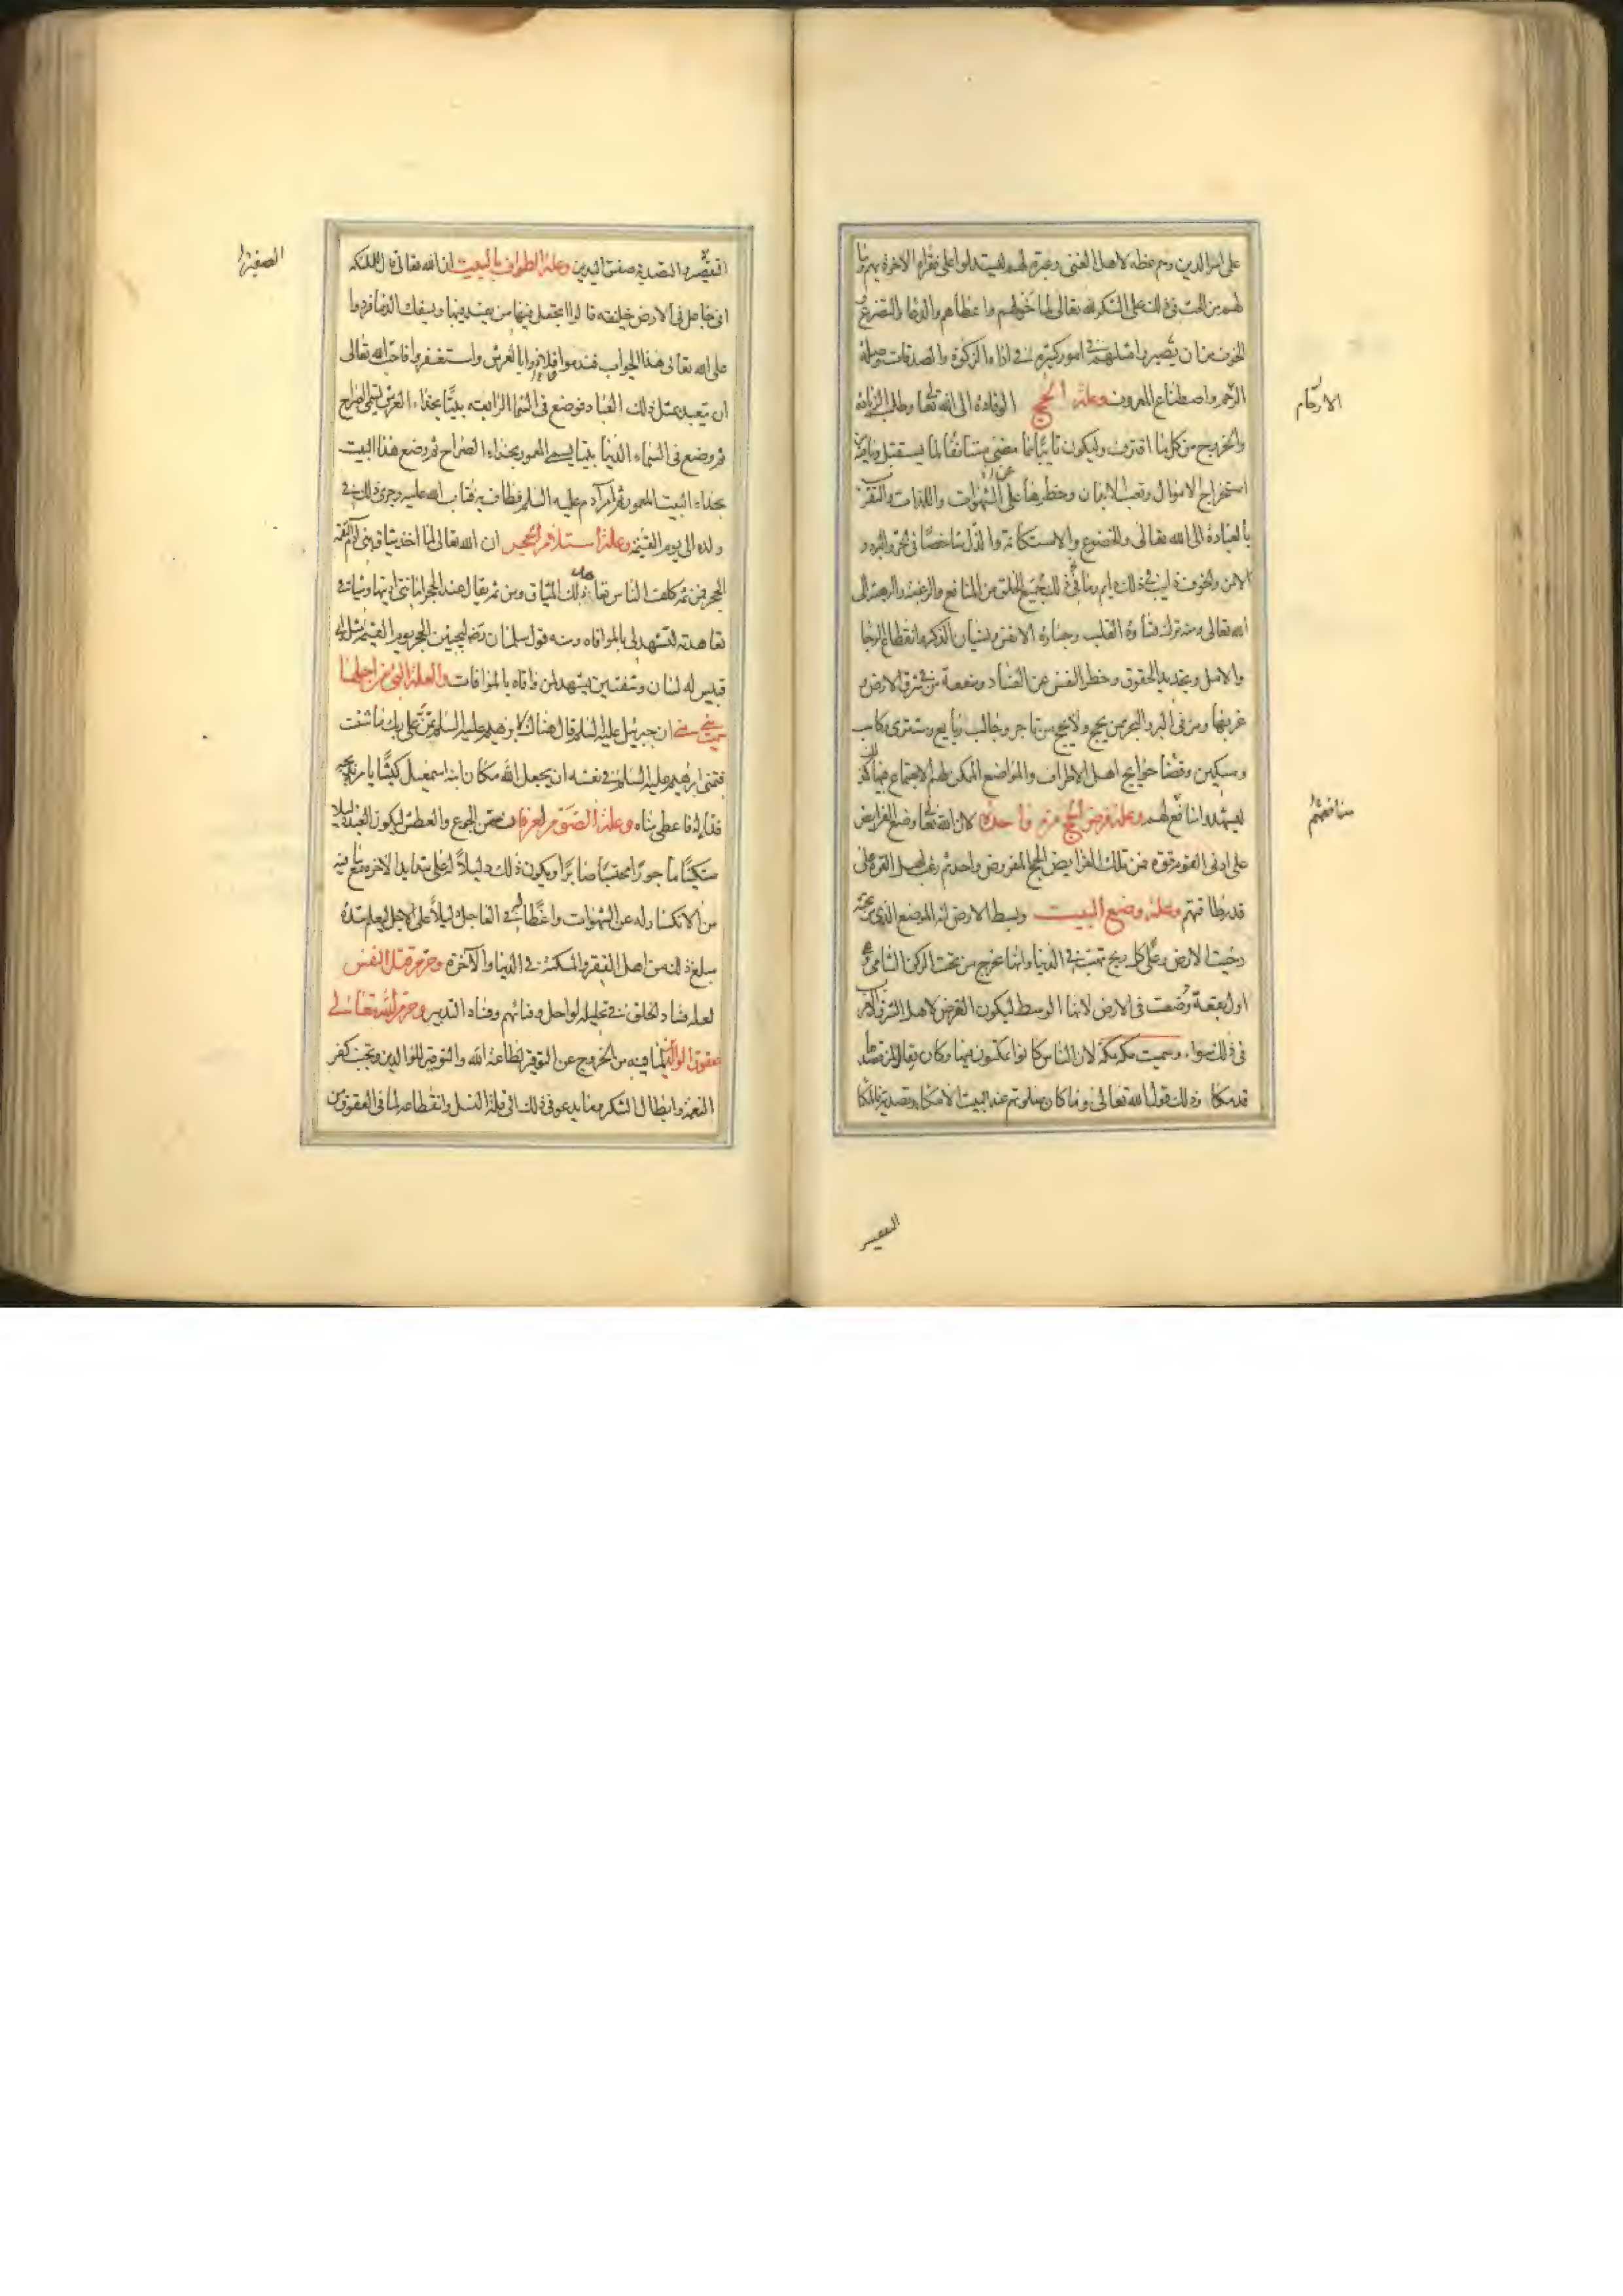 على امر الدين وهم عظة لاهل الغنى وعبرة لهم ليستدلوا على فقراء الاخرة بهم وما
لهم من الحث في ذلك على الشكر لله تعالى لما خولهم واعطاهم والدعا والتضرع
الخوف من ان يصيروا مثلهم في امور كثيرة في اداء الزكوة والصدقات وصلة
الرحم واصطناع المعروف وعلة الحج الوفادة الى الله تعا وطلب الزيادة
والخروج من كل ما اقترف وليكون تائبا مما مضى مستانفا لما يستقبل وما فيه
استخراج الاموال وتعب الابدان وحظرها عن الشهوات واللذات والتقرب
بالعبادة الى الله تعالى والخضوع والاستكانة والذل شاخصا في الحر والبرد و
الامن والخوف دايب في ذلك دايم وما في ذلك لجميع الخلق من المنافع والرغبة والرهبة الى
الله تعالى ومنه ترك قساوة القلب وجسارة الانفس ونسيان الذكر وانقطاع الرجا
والامل وتجديد الحقوق وحظر النفس عن الفساد ومنفعة من في شرق الارض و
غربها ومن في البر والبحر ممن يحج ولا يحج من تاجر وجالب وبايع ومشترى وكاسب
ومسكين وقضا حوايج اهل الاطراف والمواضع الممكن لهم الاجتماع فيها كذلك
ليشهدوا منافع لهم وعلة فرض الحج مرة واحدة لان الله تعا وضع الفرايض
على ادنى القوم قوة فمن تلك الفرايض الحج المفروض واحد ثم رغب اهل القوة على
قدر طاقتهم وعلة وضع البيت وسط الارض انه الموضع الذي من تحته
دحيت الارض وعلى كل ريح تهب في الدنيا وانها تخرج من تحت الركن الشامي و
اول بقعة وضعت في الارض لانها الوسط ليكون الفرض لاهل الشرق والغرب
في ذلك سواء وسميت مكة مكة لان الناس كانوا يمكون فيها وكان يقال لمن قصدها
قد مكا وذلك قول الله تعالى وما كان صلوتهم عند البيت الا مكاء وتصدية فالمكا
الارحام
منافعهم
الصفير
التصفير والتصدية صفق اليدين وعلة الطواف بالبيت ان الله تعالى قال للملئكة
انى جاعل في الارض خليفة قالوا اتجعل فيها من يفسد فيها ويسفك الدما فردوا
على الله تعالى هذا الجواب فندموا فلاذوا بالعرش واستغفروا فاحب الله تعالى
ان يتعبد بمثل ذلك العباد فوضع في السما الرابعة بيتا بحذاء العرش يسمى الضراح
ثم وضع في السماء الدنيا بيتا يسمى المعمور بحذاء الضراح ثم وضع هذا البيت
بحذاء البيت المعمور ثم امر آدم عليه السلم فطاف به فتاب الله عليه وجرى ذلك في
ولده الى يوم القيمة وعلة استلام الحجر ان الله تعالى لما اخذ ميثاق بنى آدم التقمه
الحجر فمن ثم كلف الناس تعاهد ذلك الميثاق ومن ثم يقال عند الحجر امانتى اديتها وميثاقي
تعاهدته لتشهد لى بالموافاة ومنه قول سلمان رضه ليجيئن الحجر يوم القيمة مثل ابى
قبيس له لسان وشفتين يشهد لمن وافاه بالموافات والعلة التى من اجلها
سميت منى منى ان جبرئيل عليه السلم قال هناك لابرهيم عليه السلم تمن على ربك ما شئت
فتمنى ابرهيم عليه السلم في نفسه ان يجعل الله مكان ابنه اسمعيل كبشا يامره بذبحه
فداء له فاعطى مناه وعلة الصوم لعرفان مس الجوع والعطش ليكون العبد ذليلا
مستكينا ماجورا محتسبا صابرا ويكون ذلك دليلا له على شدايد الاخرة مع ما فيه
من الانكسار له عن الشهوات واعظا له في العاجل دليلا على الاجل ليعلم شدة
مبلغ ذلك من اهل الفقر والمسكنة في الدنيا والآخرة وحرم قتل النفس
لعلة فساد الخلق في تحليله لو احل وفنائهم وفساد التدبير وحرم الله تعالى
عقوق الوالدين لما فيه من الخروج عن التوقير لطاعة الله والتوقير للوالدين وتجنب كفر
النعمة وابطال الشكر وما يدعو في ذلك الى قلة النسل وانقطاعه لما في العقوق من